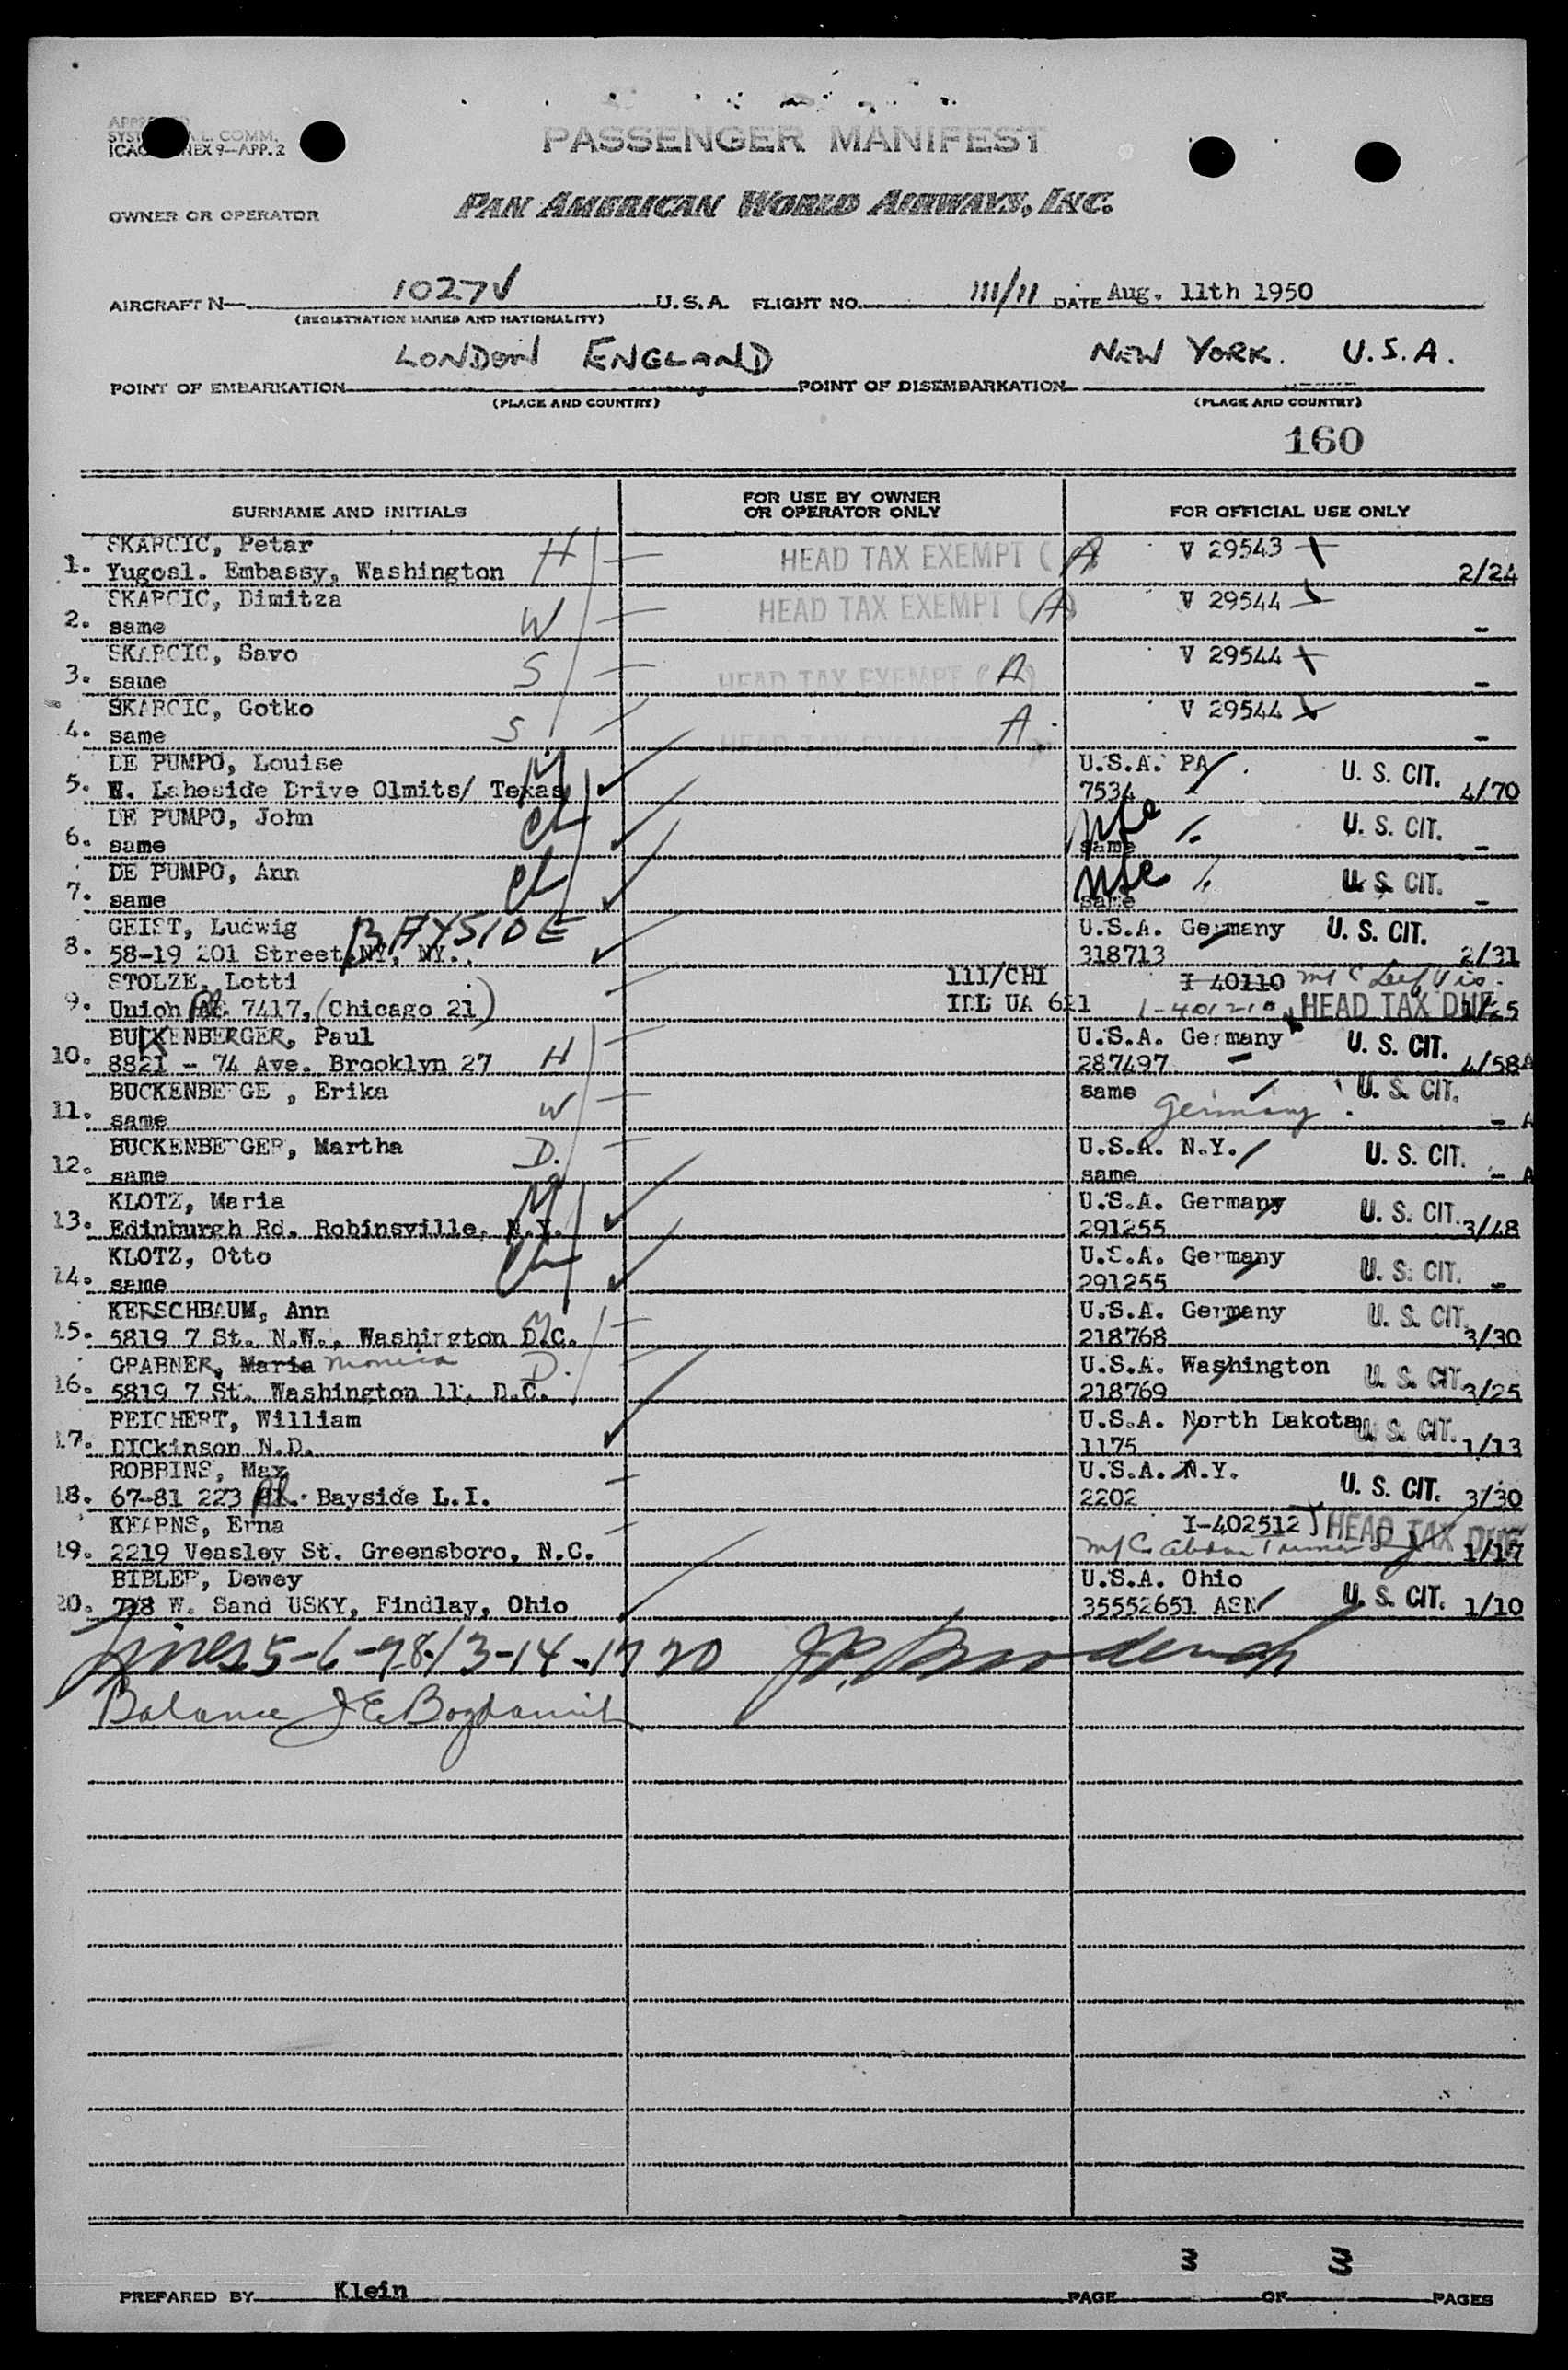 PASSENGER MANIFEST
ICAO ANNEX 9—APP. 2
OWNER OR OPERATOR PAN AMERICAN WORLD AIRWAYS, INC.
AIRCRAFT N— 1027V U.S.A. FLIGHT NO. 111/11 DATE Aug. 11th 1950
(REGISTRATION MARKS AND NATIONALITY)
LONDON ENGLAND NEW YORK. U.S.A.
POINT OF EMBARKATION POINT OF DISEMBARKATION
(PLACE AND COUNTRY) (PLACE AND COUNTRY)
160
SURNAME AND INITIALS FOR USE BY OWNER OR OPERATOR ONLY FOR OFFICIAL USE ONLY
SKARCIC, Petar H HEAD TAX EXEMPT ( A V 29543
1. Yugosl. Embassy, Washington 2/24
SKARCIC, Dimitza W HEAD TAX EXEMPT ( A ) V 29544
2. same -
SKARCIC, Savo S HEAD TAX EXEMPT ( A ) V 29544
3. same -
SKARCIC, Gotko S HEAD TAX EXEMPT A V 29544
4. same -
DE PUMPO, Louise M U.S.A. PA U. S. CIT.
5. W. Laheside Drive Olmits/ Texas 7534 4/70
DE PUMPO, John Ch U. S. CIT.
6. same same -
DE PUMPO, Ann Ch U. S. CIT.
7. same same -
GEIST, Ludwig BAYSIDE U.S.A. Germany U. S. CIT.
8. 58-19 201 Street, NY, NY. 318713 2/31
STOLZE, Lotti 111/CHI I 40110
9. Union 7417, (Chicago 21) UA 621 I-401210 HEAD TAX DUE
BUCKENBERGER, Paul H U.S.A. Germany U. S. CIT.
10. 8821 - 74 Ave. Brooklyn 27 287497 4/58 A
BUCKENBERGE , Erika W same U. S. CIT.
11. same Germany - A
BUCKENBERGER, Martha D. U.S.A. N.Y. U. S. CIT.
12. same same - A
KLOTZ, Maria M U.S.A. Germany U. S. CIT.
13. Edinburgh Rd. Robinsville, N.Y. 291255 3/48
KLOTZ, Otto Ch U.S.A. Germany U. S. CIT.
14. same 291255 -
KERSCHBAUM, Ann M U.S.A. Germany U. S. CIT.
15. 5819 7 St. N.W., Washington D.C. 218768 3/30
GRABNER, Maria Monica D. U.S.A. Washington U. S. CIT.
16. 5819 7 St. Washington 11, D.C. 218769 3/25
REICHERT, William U.S.A. North Dakota U. S. CIT.
17. DICkinson N.D. 1175 1/13
ROBBINS, Max U.S.A. N.Y. U. S. CIT.
18. 67-81 223 Pl. Bayside L.I. 2202 3/30
KEARNS, Erna I-402512 HEAD TAX DUE
19. 2219 Veasley St. Greensboro, N.C. 1/17
BIBLER, Dewey U.S.A. Ohio U. S. CIT.
20. 718 W. Sand USKY, Findlay, Ohio 35552651 ASN 1/10
Lines 5-6-7-8-13-14-17 20
Balance
PREPARED BY Klein PAGE 3 OF 3 PAGES